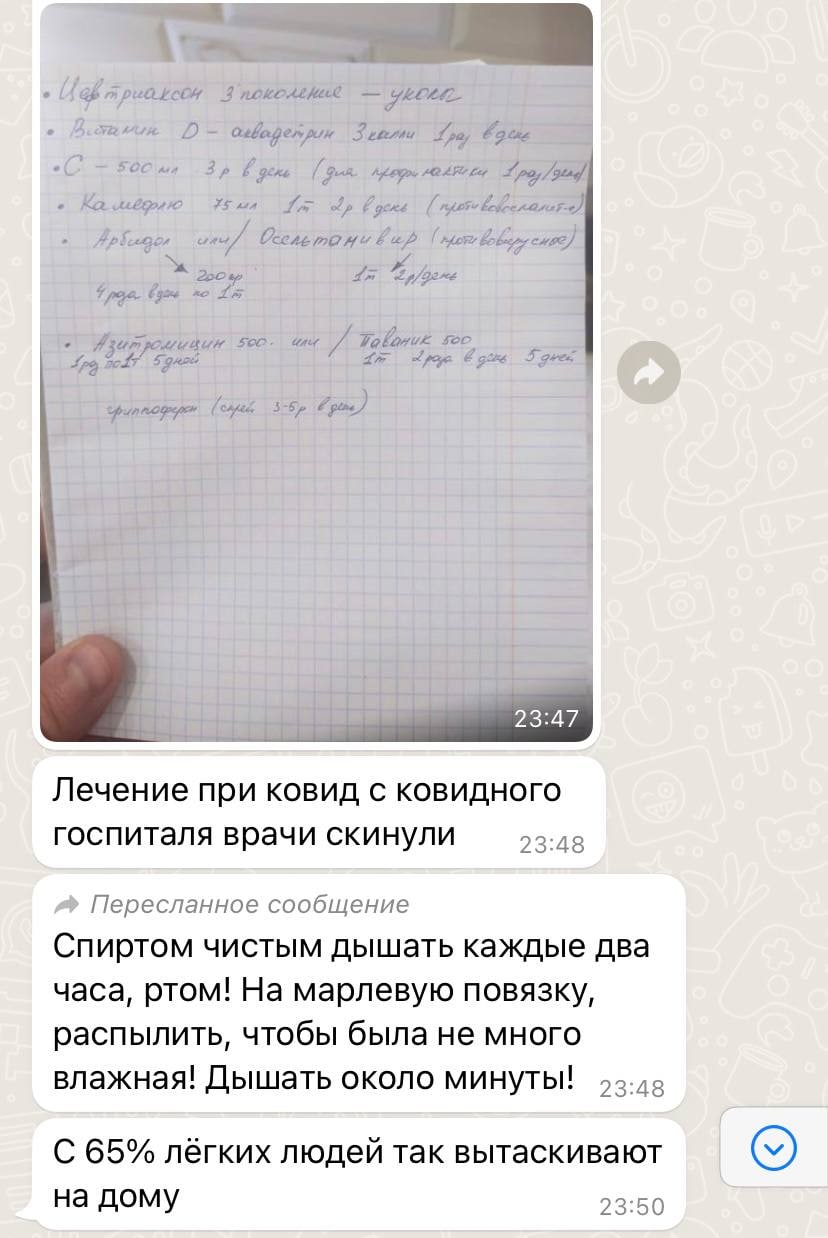 • Цефтриаксон 3 поколение — уколы
• Витамин D – аквадетрин 3 капли 1 раз в день
• С – 500 мл 3 р в день (для профилактики 1 раз/день)
• Камефлю 75 мл 1т 2р в день (противовоспалит-е)
• Арбидол или/ Осельтамивир (противовирусное)
200гр 1т 2р/день
4 раза в день по 1т
• Азитромицин 500. или / Таваник 500
1 раз по 1т 5 дней 1т 2 раза в день 5 дней
гриппферон (спрей 3-5 р в день)
23:47
Лечение при ковид с ковидного
госпиталя врачи скинули 23:48
Пересланное сообщение
Спиртом чистым дышать каждые два
часа, ртом! На марлевую повязку,
распылить, чтобы была не много
влажная! Дышать около минуты! 23:48
С 65% лёгких людей так вытаскивают
на дому 23:50